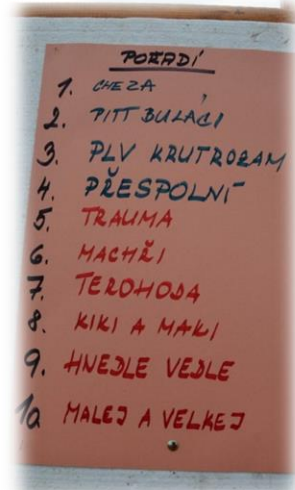 POŘADÍ
1. CHEZA
2. PITT BULÁCI
3. PLV KRUTROZAM
4. PŘESPOLNÍ
5. TRAUMA
6. MACHŘI
7. TEROHODA
8. KIKI A MAKI
9. HNEDLE VEDLE
10 MALEJ A VELKEJ